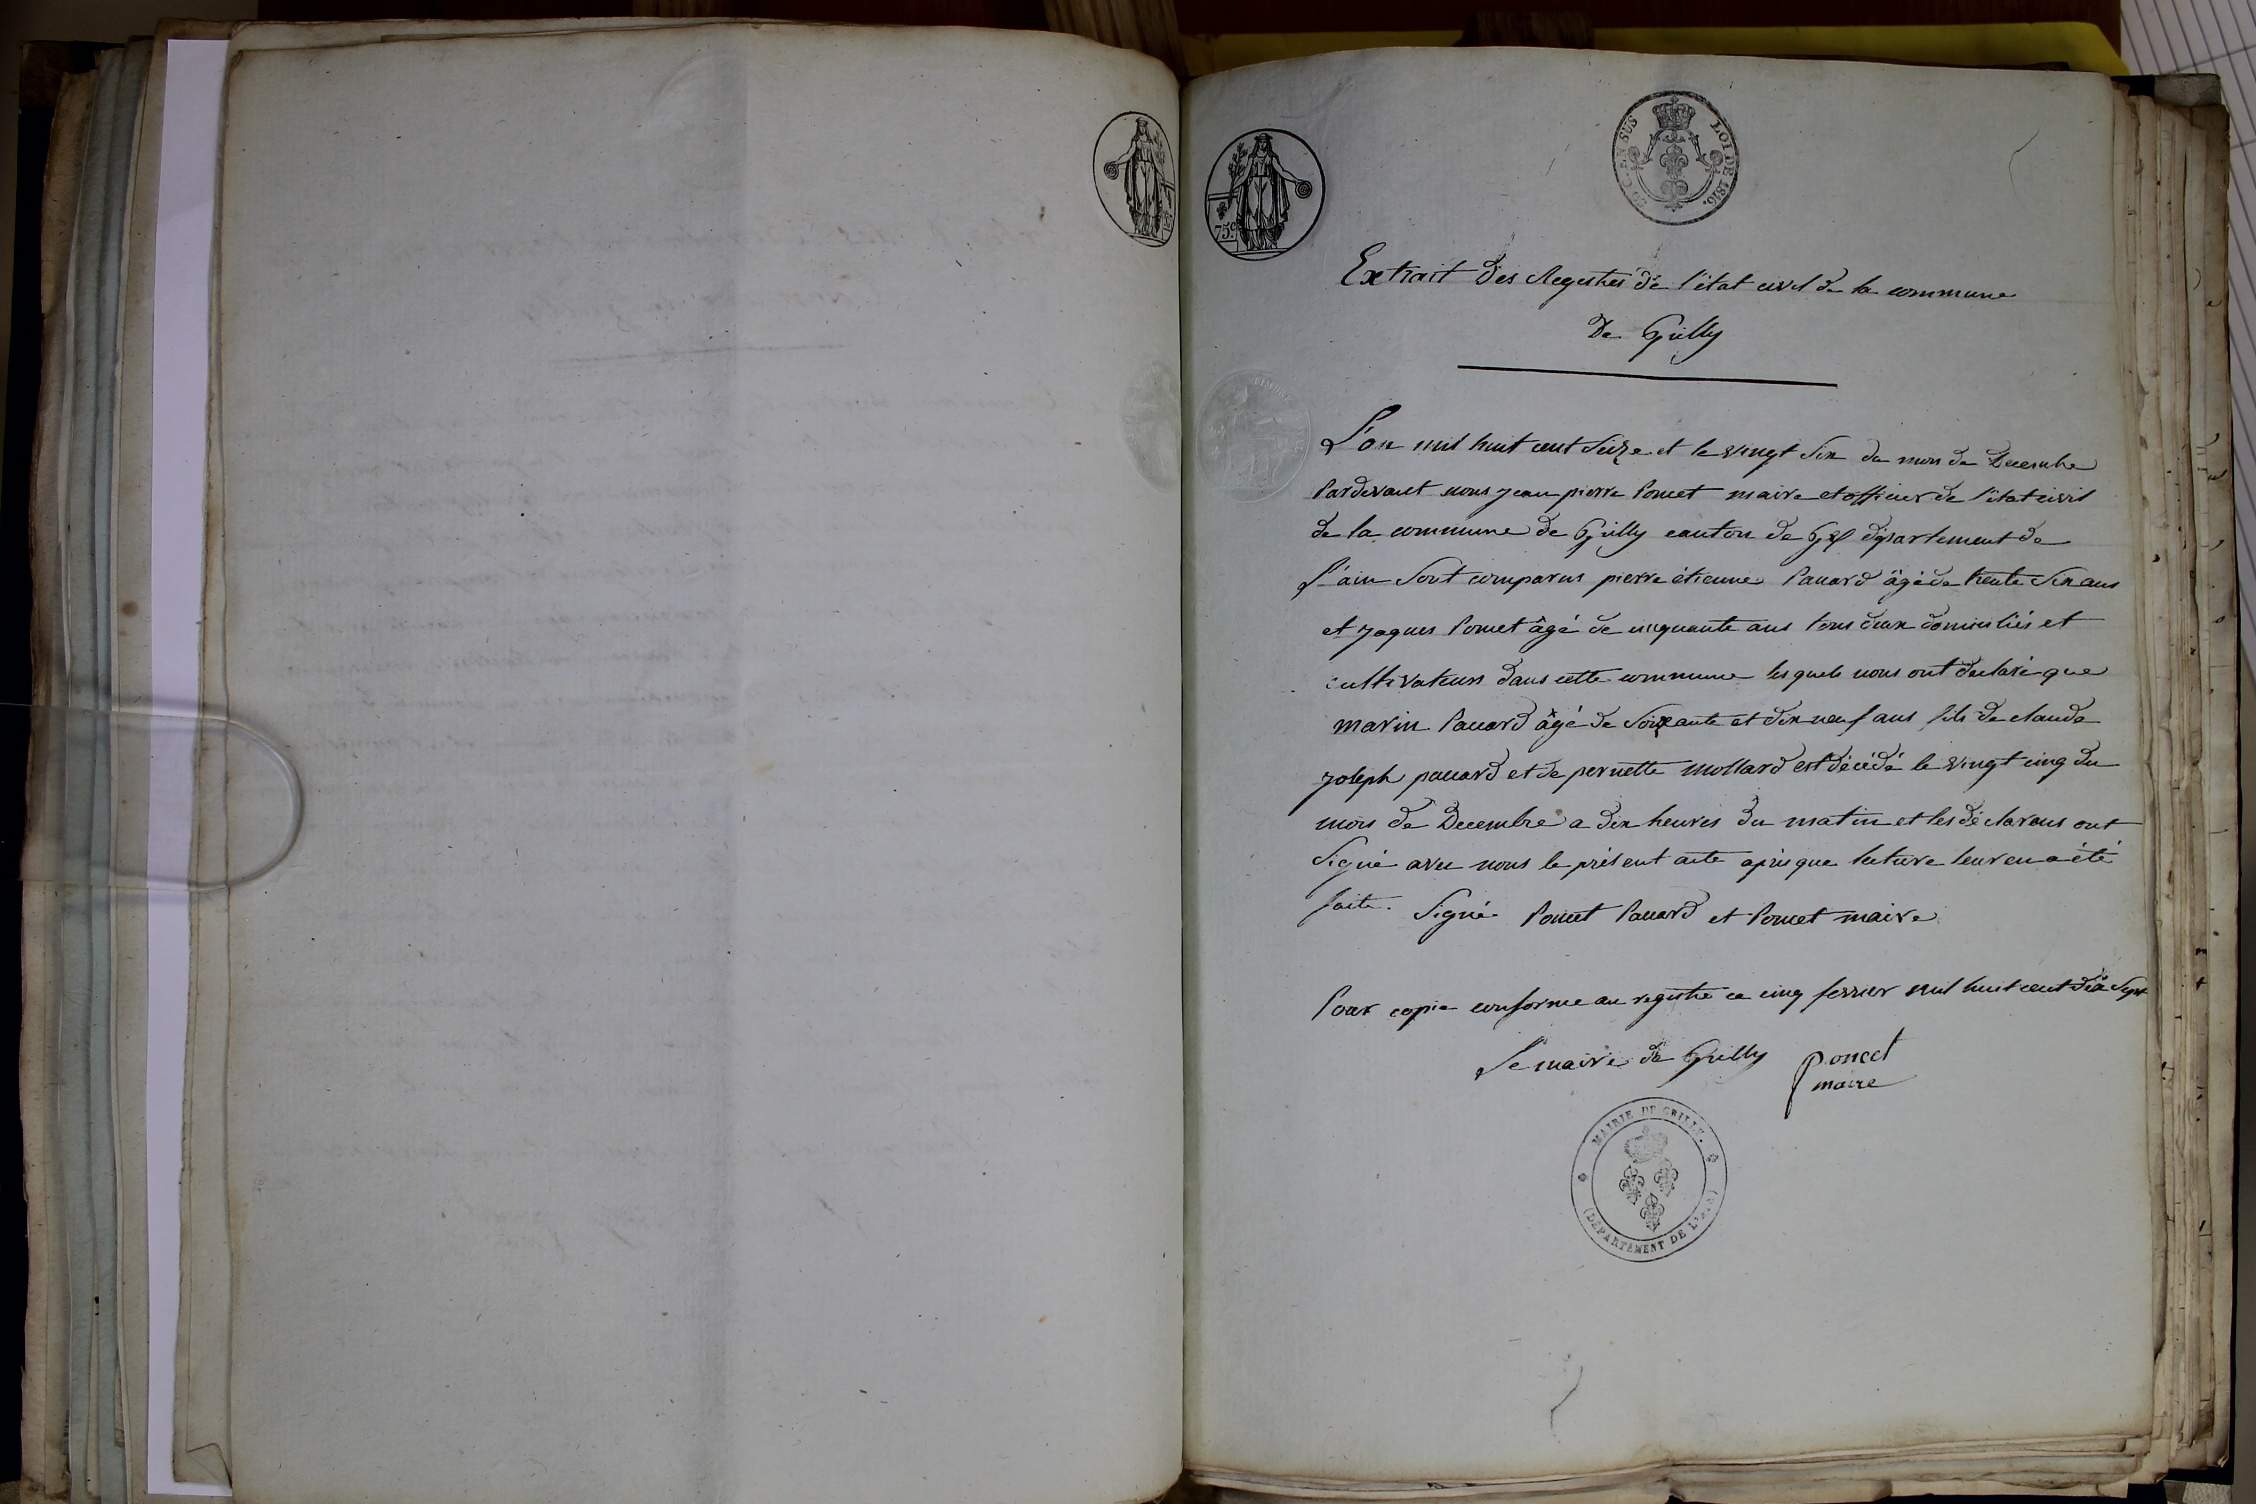 75c
50 C. EN SUS
LOI DE 1816.
Extrait des Registres de l'état civil de la commune
De Grilly
L'an mil huit cent Seize et le vingt Six du mois de Decembre
Pardevant nous jean pierre Poncet maire et officier de l'état civil
de la commune de Grilly canton de Gex département de
l'ain Sont comparus pierre étienne Panard âgé de trente Six ans
et jaques Poncet âgé de cinquante ans tous deux domiciliés et
cultivateurs dans cette commune lesquels nous ont déclaré que
marin Panard âgé de Soixante et dix neuf ans fils de claude
joseph panard et de pernette Mollard est décédé le vingt cinq du
mois de Decembre a dix heures du matin et les déclarans ont
Signé avec nous le présent acte après que lecture leur en a été
faite. Signé Poncet Panard et Poncet maire
Pour copie conforme au registre ce cinq fevrier mil huit cent dix Sept
Le maire de Grilly
Poncet
maire
MAIRIE DE GRILLY.
(DÉPARTEMENT DE L'AIN)